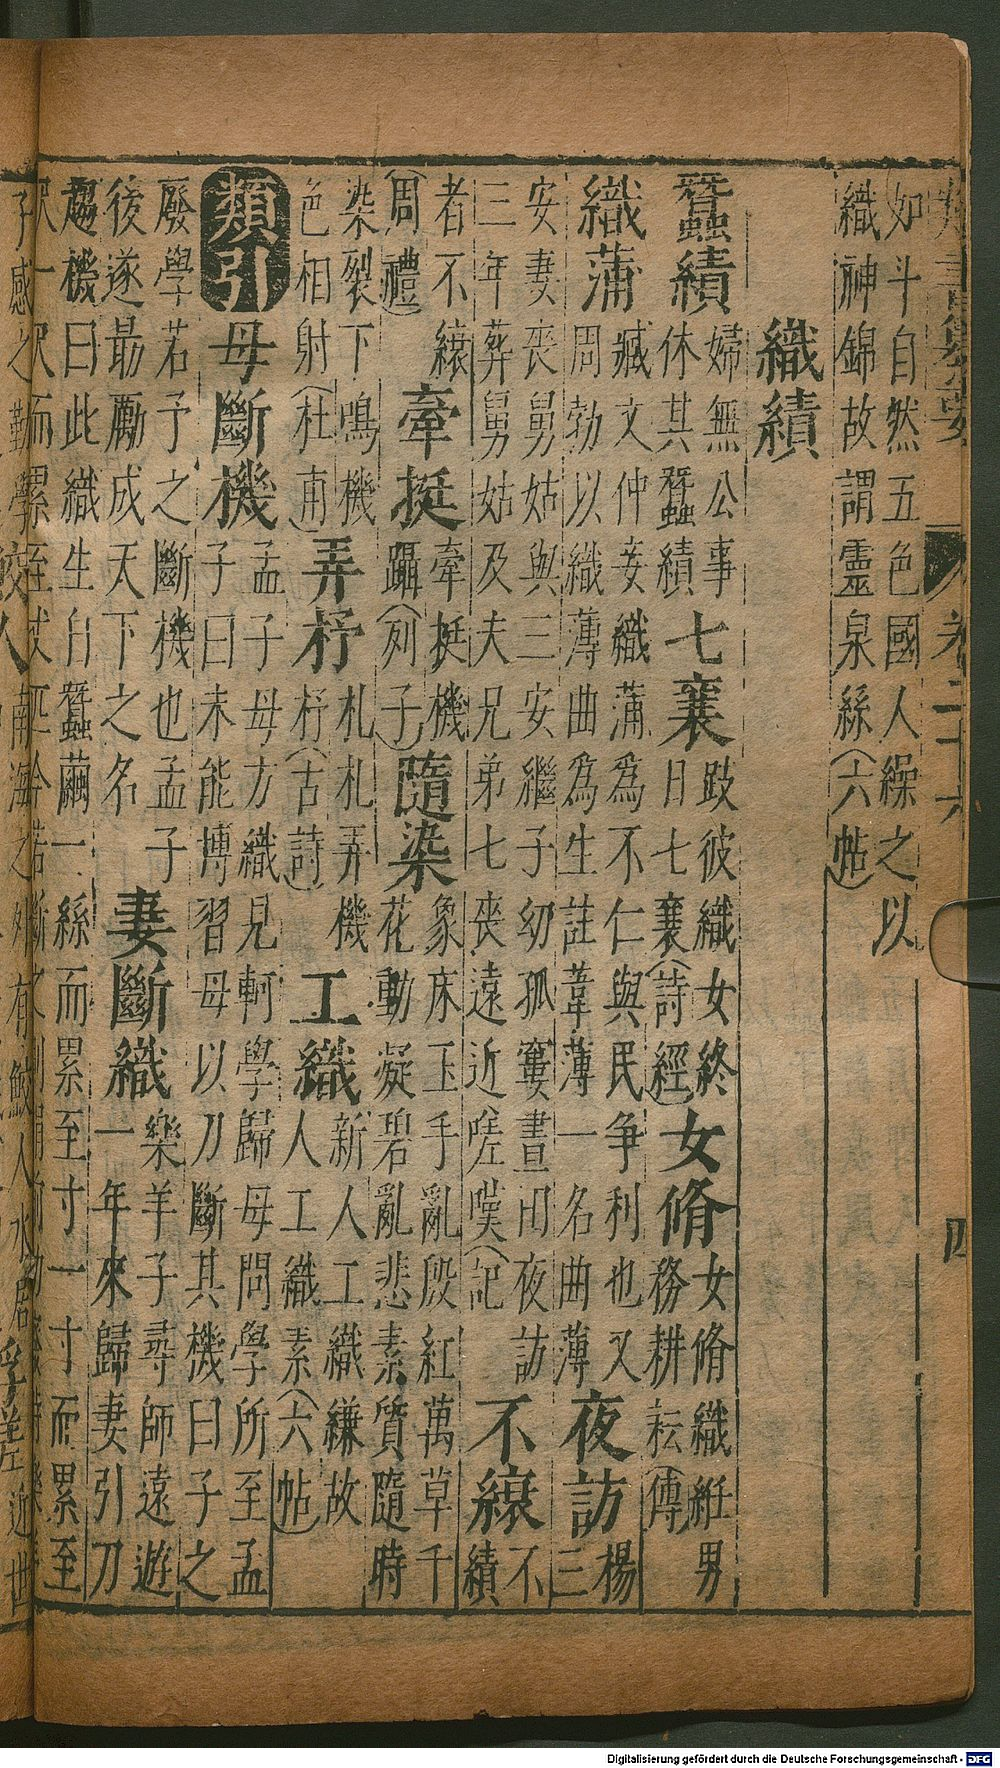 如斗自然五色國人繰之以
織神錦故謂靈泉絲(六帖)
織績
蠶績
婦無公事
休其蠶績
七襄
跂彼織女終
日七襄(詩經)
女脩
女脩織絍男
務耕耘(傳)
織蒲
臧文仲妾織蒲為不仁與民争利也又
周勃以織薄曲為生註葦薄一名曲薄
夜訪
楊
三
安妻喪舅姑與三安繼子幼孤窶晝田夜訪
三年葬舅姑及夫兄弟七喪遠近嗟嘆(記
不縗
不
績
者不縗
(周禮)
牽挺
牽挺機
躡(列子)
隨染
象床玉手亂殷紅萬草千
花動凝碧亂悲素質隨時
染裂下鳴機
色相射(杜甫)
弄杼
札札弄機
杼(古詩)
工織
新人工織縑故
人工織素(六帖)
類引
母斷機
孟子母方織見軻學歸母問學所至孟
子曰未能博習母以刀斷其機曰子之
廢學若予之斷機也孟子
後遂最勵成天下之名
妻斷織
樂羊子尋師遠遊
一年來歸妻引刀
趨機曰此織生自蠶繭一絲而累至寸一寸而累至
子感之勤學
南海之外有鮫人水居
Digitalisierung gefördert durch die Deutsche Forschungsgemeinschaft - DFG